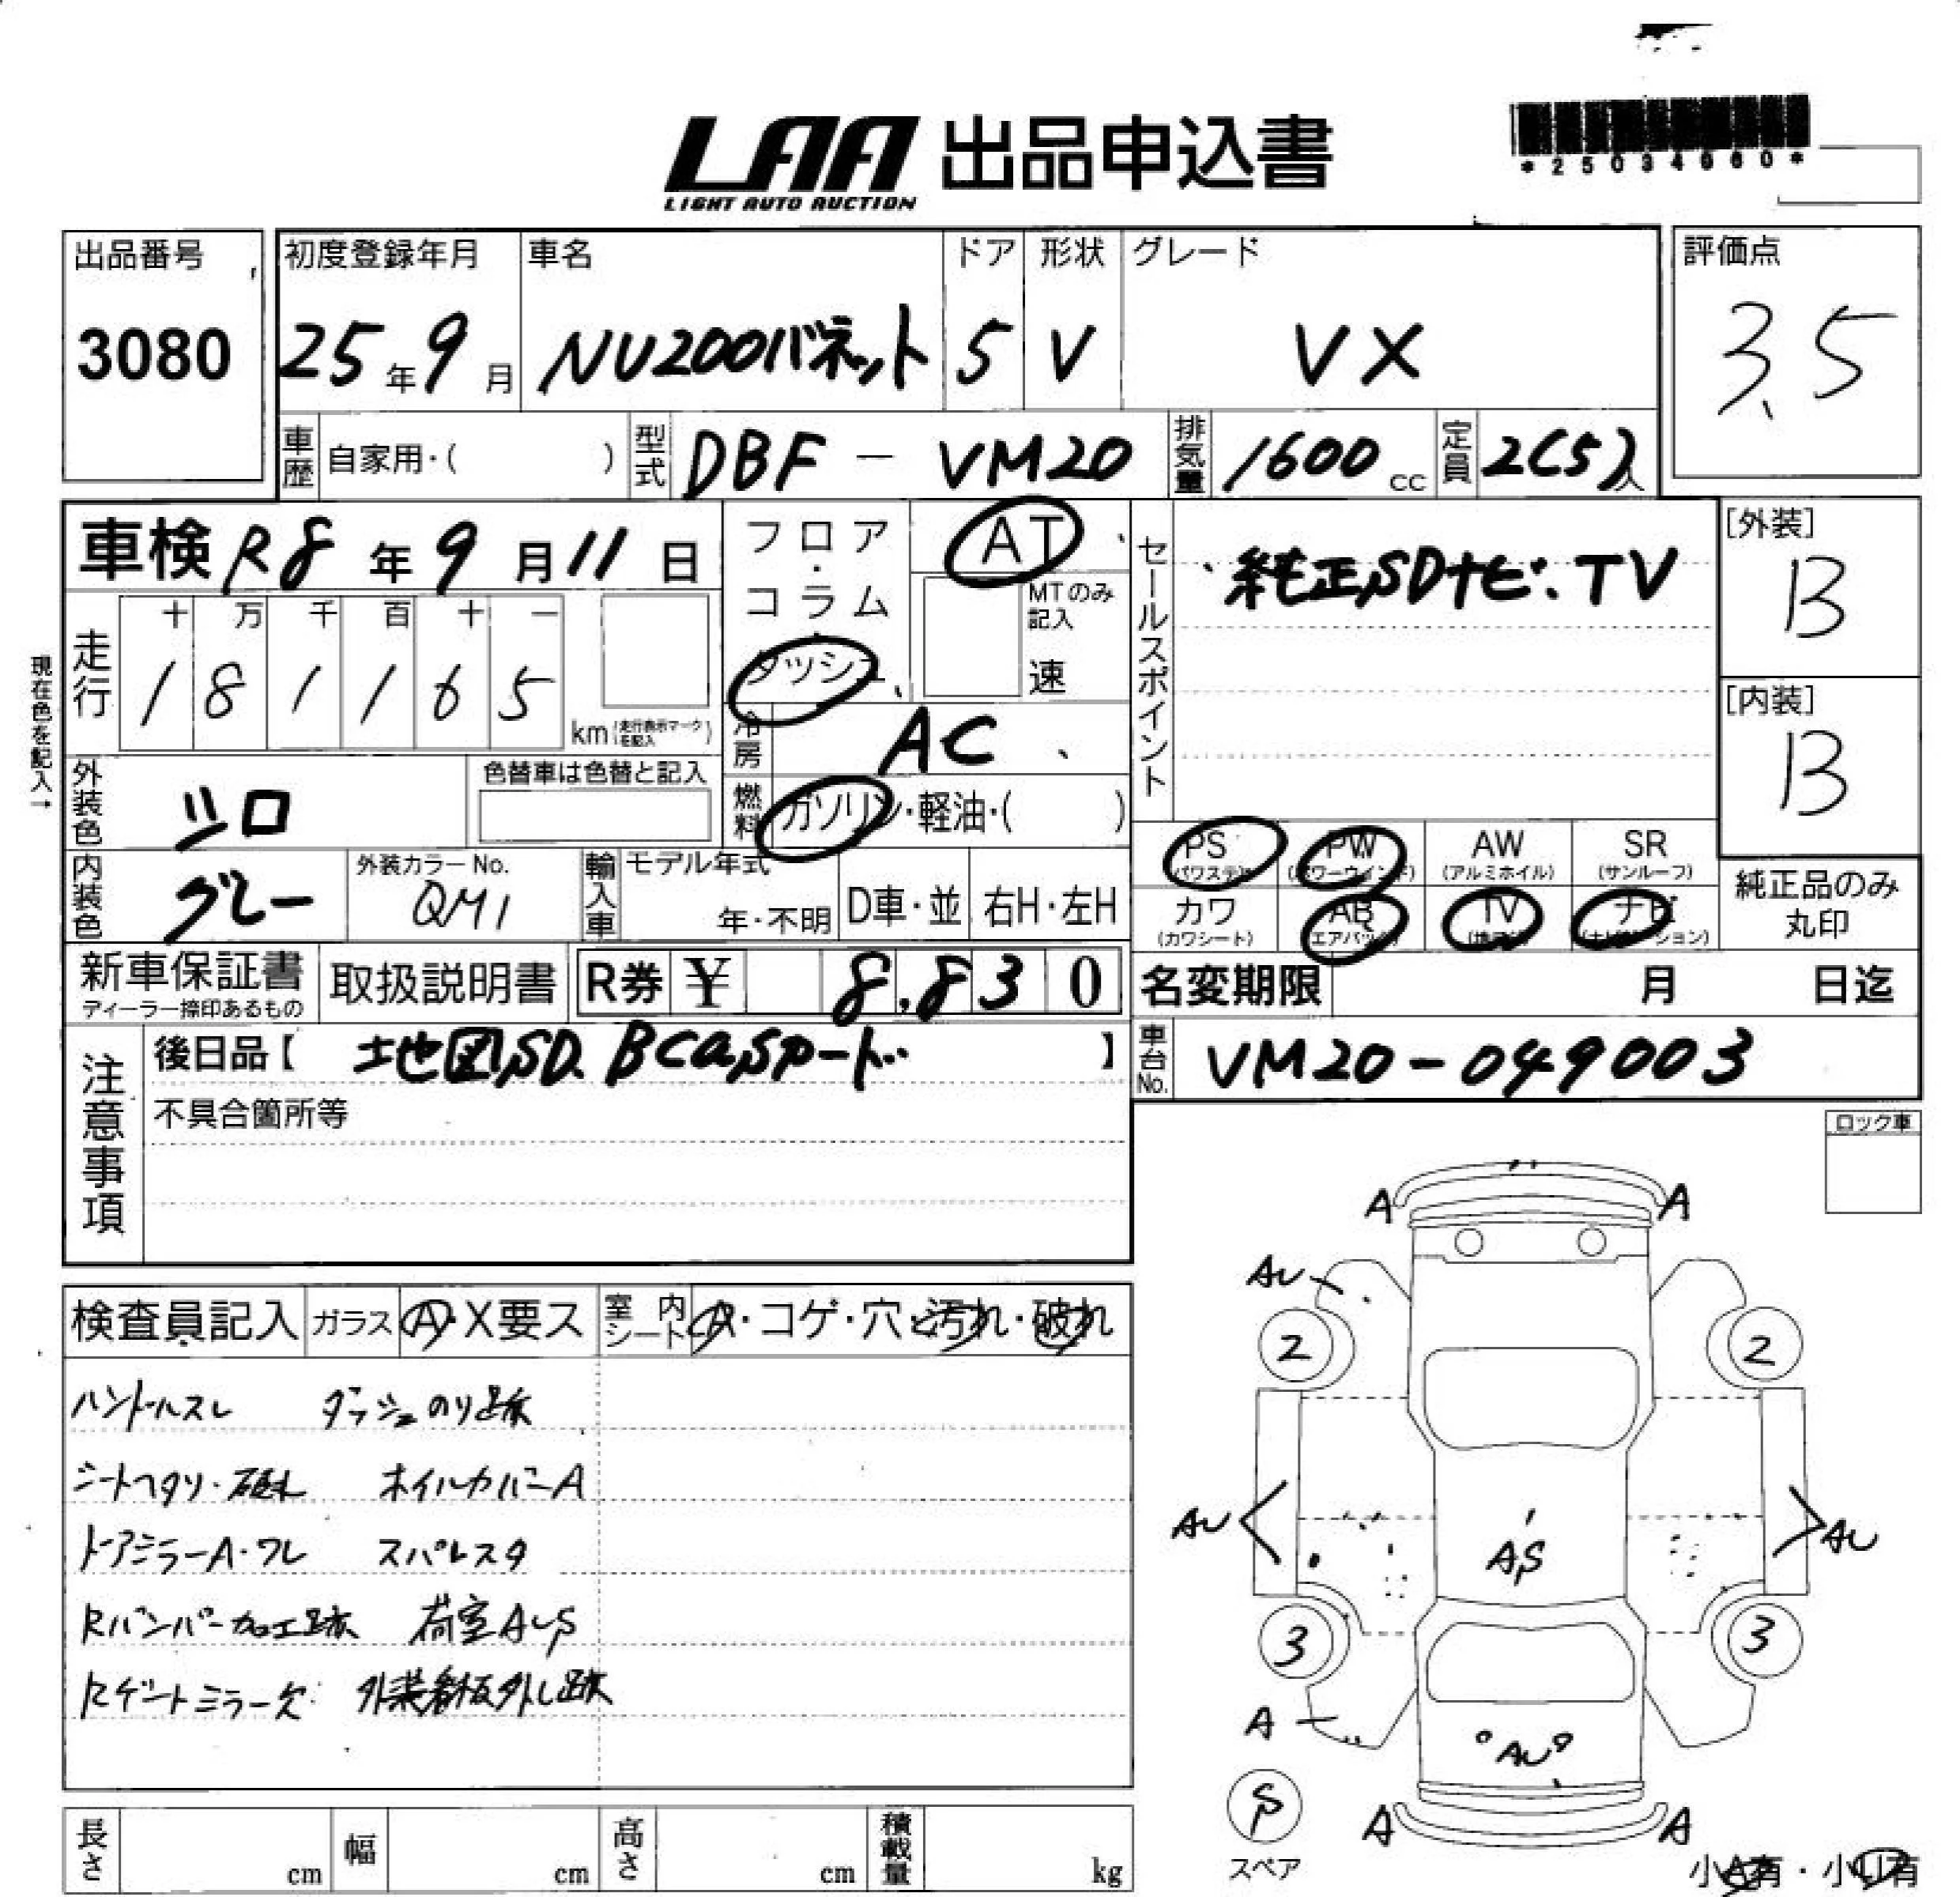 LAA 出品申込書
LIGHT AUTO AUCTION
*25034960*
出品番号
3080
初度登録年月
25年9月
車名
NU200バネット
ドア
5
形状
V
グレード
VX
評価点
3.5
車歴 自家用・( )
型式 DBF - VM20
排気量 1600 cc
定員 2(5)人
車検 R8年9月11日
フロア・コラム・ダッシュ
AT
MTのみ記入
速
セールスポイント
純正SDナビ.TV
[外装]
B
[内装]
B
現在色を記入→
走行
十 万 千 百 十 一
1 8 1 1 6 5
km (走行表示マークを記入)
冷房 AC
燃料 ガソリン・軽油・( )
外装色 シロ
色替車は色替と記入
内装色 グレー
外装カラーNo.
QM1
輸入車
モデル年式
年・不明
D車・並
右H・左H
PS (パワステ)
PW (パワーウインド)
AW (アルミホイル)
SR (サンルーフ)
カワ (カワシート)
AB (エアバック)
TV
ナビ (ナビゲーション)
純正品のみ
丸印
新車保証書
ディーラー捺印あるもの
取扱説明書
R券 ¥ 8,830
名変期限 月 日迄
注意事項
後日品【 地図SD. BCasカード 】
不具合箇所等
車台No. VM20-049003
ロック車
検査員記入
ガラス A・X要ス
室内シート A・コゲ・穴・汚れ・破れ
ハンドルスレ ダッシュのり跡
シートヘタリ・破れ ホイルカバーA
ドアミラーA・ワレ スパレスタ
Rバンパー加工跡 荷室AUS
Rゲートミラー欠 外装看板外し跡
A A
AU
2 2
AU AU
AS
3 3
A
AU
S
スペア
A A
小A有・小U有
長さ cm
幅 cm
高さ cm
積載量 kg